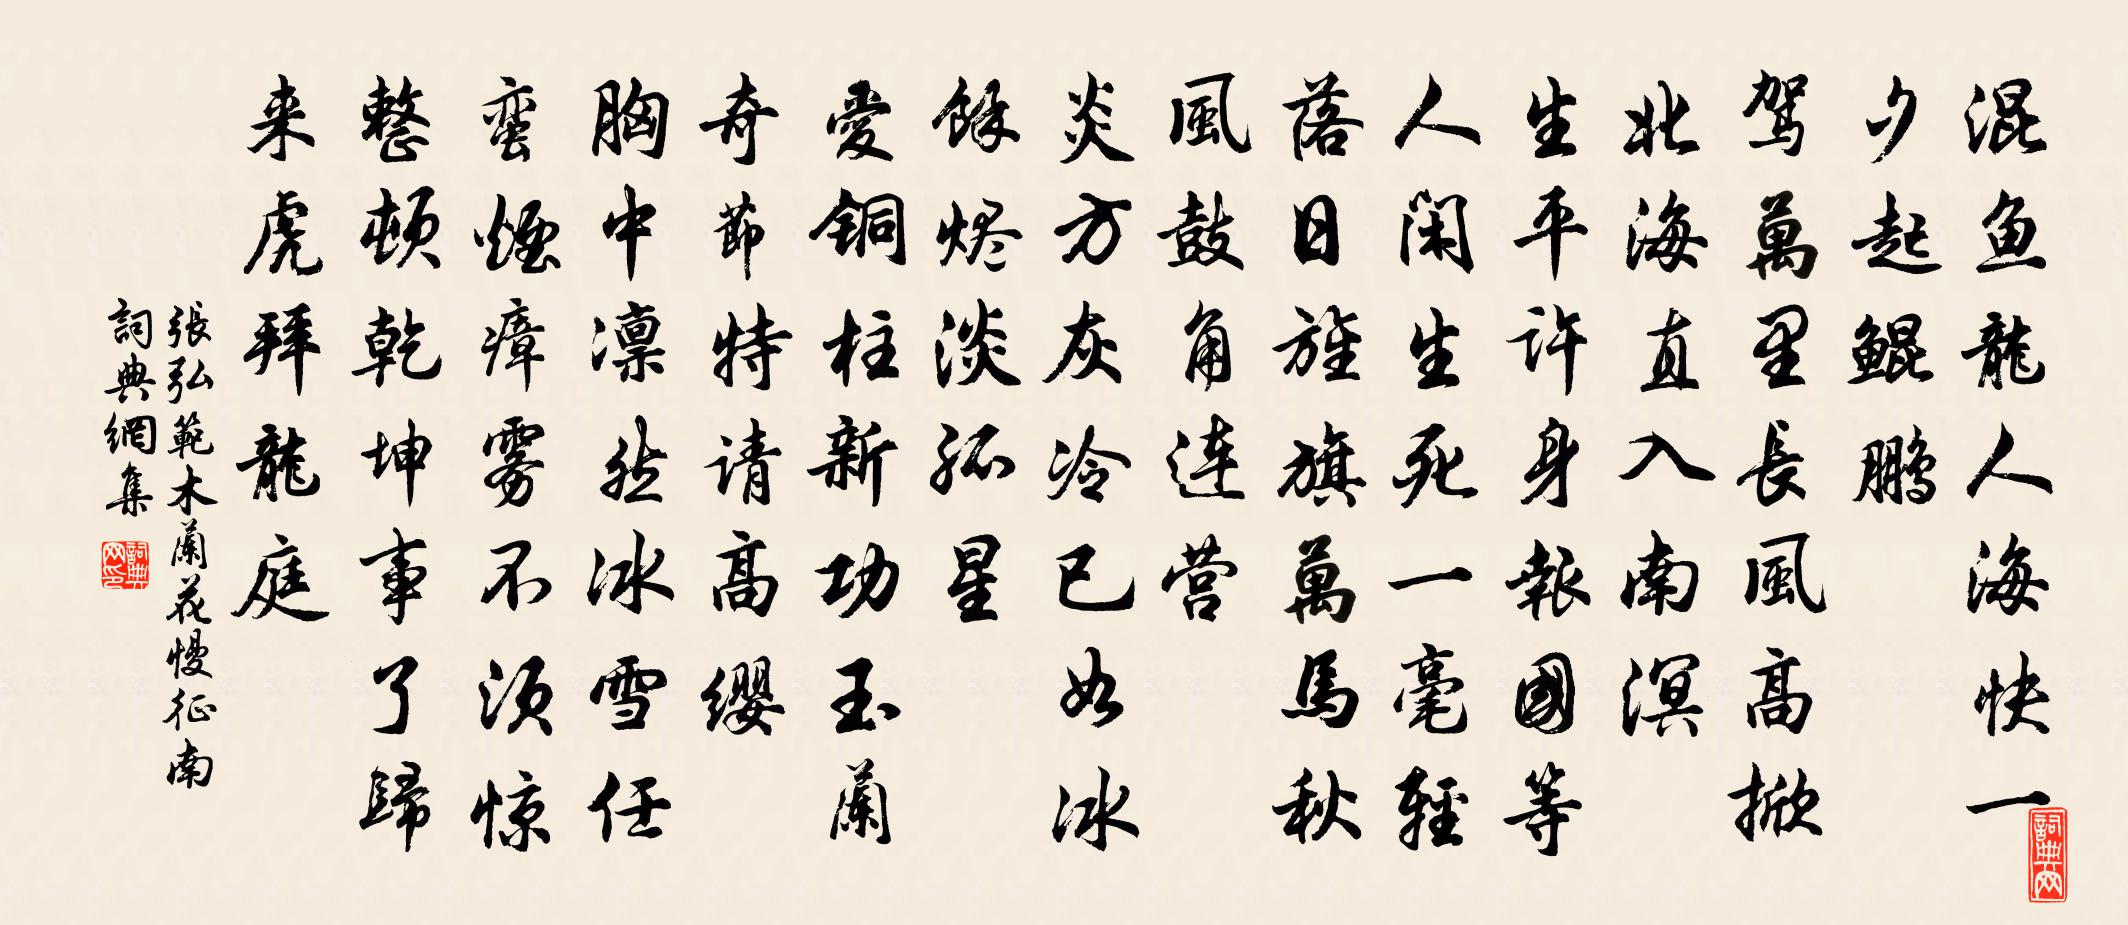 混鱼龍人海快一
夕起鲲鹏
驾萬里長風高掀
北海直入南溟
生平许身報國等
人闲生死一毫輕
落日旌旗萬馬秋
風鼓角连营
炎方灰冷已如冰
餘烬淡孤星
愛铜柱新功玉蘭
奇節特请高缨
胸中凛然冰雪任
蛮煙瘴雾不须惊
整顿乾坤事了歸
来虎拜龍庭
張弘範木蘭花慢征南
詞典網集
詞典网印
詞典网